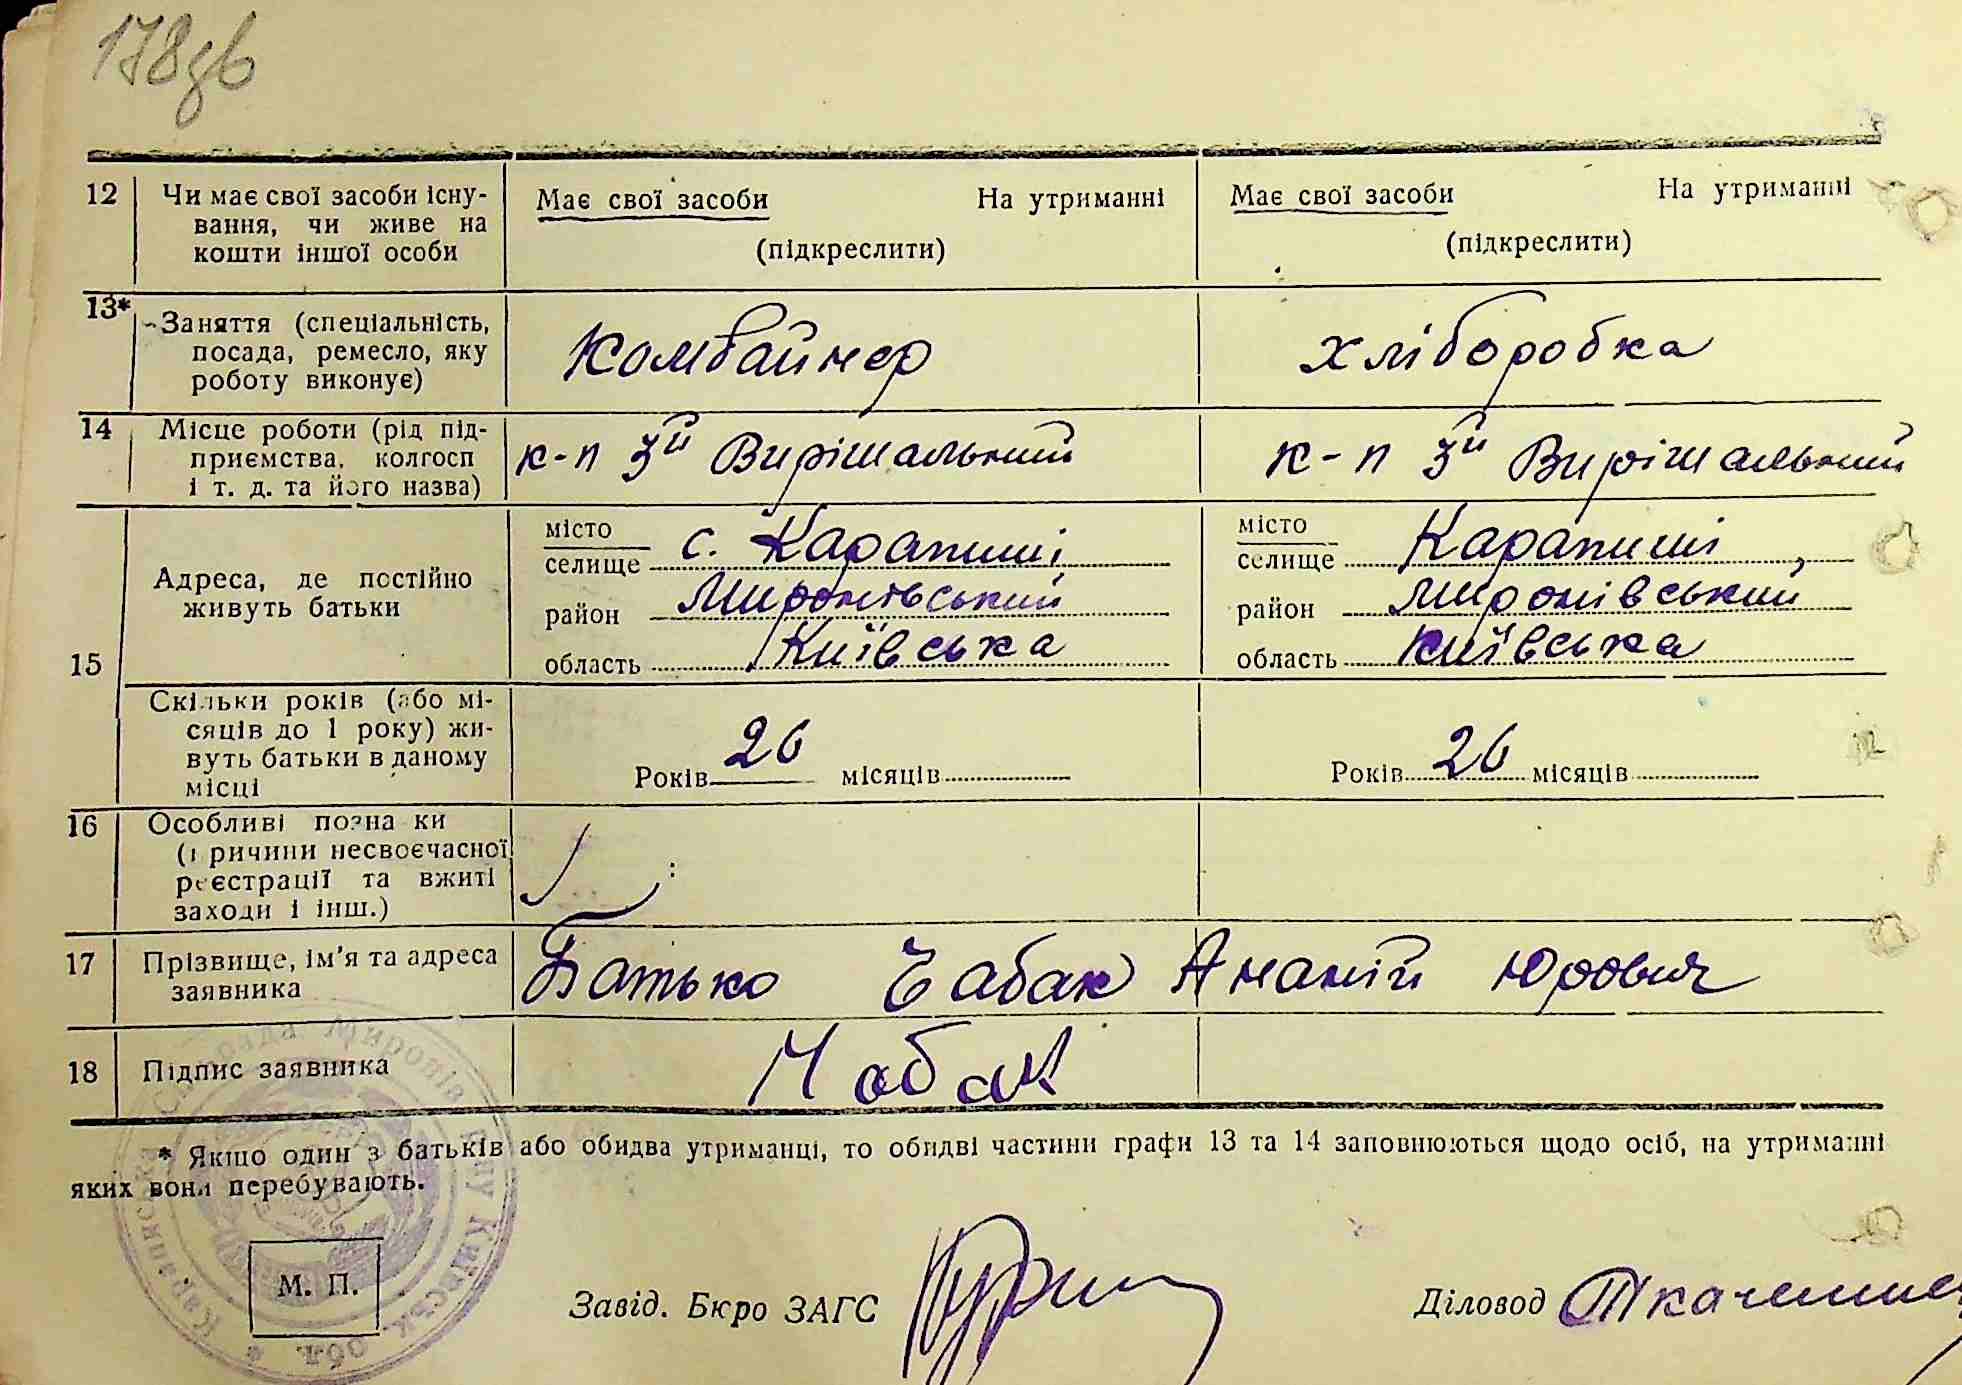 178зв
12 Чи має свої засоби існу- Має свої засоби На утриманні Має свої засоби На утриманні
вання, чи живе на (підкреслити) (підкреслити)
кошти іншої особи
13* Заняття (спеціальність, Комбайнер хліборобка
посада, ремесло, яку
роботу виконує)
14 Місце роботи (рід під- к-п 3й Вирішальний к-п 3й Вирішальний
приємства, колгосп
і т. д. та його назва)
15 Адреса, де постійно місто с. Карапиші місто Карапиші
живуть батьки селище селище
район Миронівський район Миронівський
область Київська область Київська
Скільки років (або мі- Років 26 місяців Років 26 місяців
сяців до 1 року) жи-
вуть батьки в даному
місці
16 Особливі позна ки
(причини несвоєчасної
реєстрації та вжиті
заходи і інш.)
17 Прізвище, ім'я та адреса Батько Чабак Ананій Юрович
заявника
18 Підпис заявника Чабак
* Якщо один з батьків або обидва утриманці, то обидві частини графи 13 та 14 заповнюються щодо осіб, на утриманні
яких вони перебувають.
М. П.
Завід. Бюро ЗАГС
Діловод Ткаченко